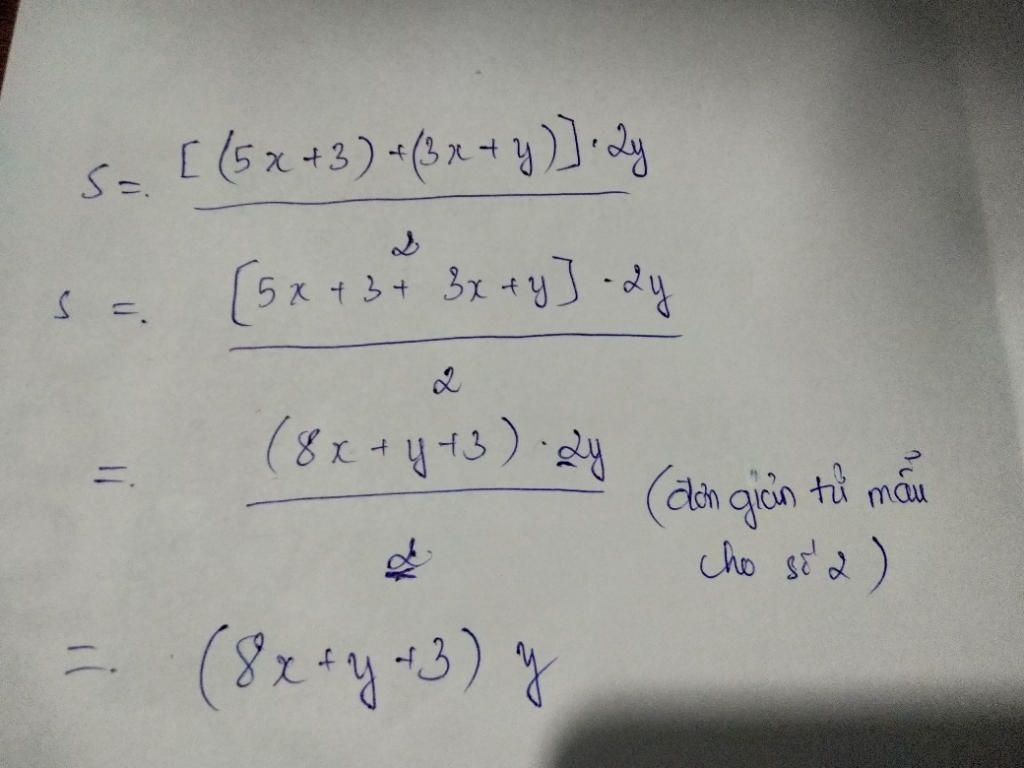 S = [(5x+3)+(3x+y)]·2y
2
S = [5x+3+ 3x+y]·2y
2
= (8x+y+3)·2y
2
(đơn giản tử mẫu
cho số 2)
= (8x+y+3) y